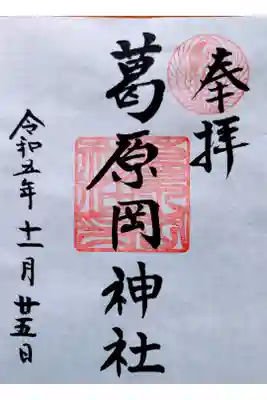 奉拝
葛原岡神社
令和五年十一月廿五日